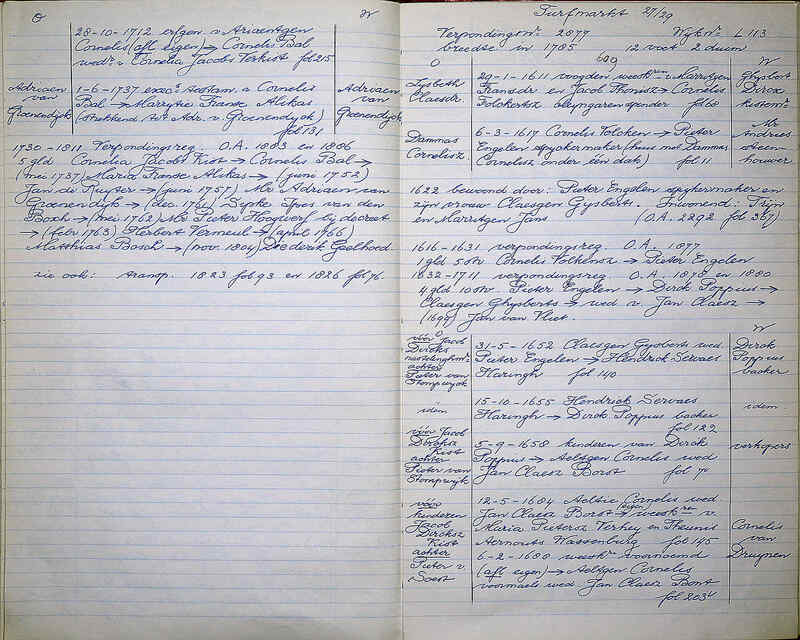 O W
28-10-1712 erfgen. v. Ariaentgen
Cornelis (afl eigen) → Cornelis Bal
wedr v. Cornelia Jacobs Terkist fol 215
Adriaen
van
Groenendyck
1-6-1737 exec. testam. v. Cornelis
Bal → Marrytie Franse Alikas
(strekkend tot Adr. v. Groenendyck)
fol 131
Adriaen
van
Groenendyck
1730 - 1811 Verpondingsreg. O.A. 1883 en 1886
5 gld Cornelia Jacobs Kist → Cornelis Bal →
(mei 1737) Maria Franse Alikas → (juni 1752)
Jan de Ruyter → (juni 1757) Mr Adriaen van
Groenendyk → (dec. 1761) van den
Bosch → (mei 1762) Mr Pieter Hoogwerf by decreet
→ (febr 1763) Herbert Vermeul → (april 1766)
Matthias Bosch → (nov. 1801) Diederik Geelhoed
zie ook: transp. 1823 fol 93 en 1826 fol 76.
Turfmarkt 27/29
Verpondingsnr. 2077 Wijknr. L 113
breedte in 1785 12 voet 2 duim
609
O W
Lysbeth
Claesdr.
29-1-1611 voogden weesk v. Marritgen
Fransdr en Jacob Thonisz → Cornelis
Folckertsz fol 68
Ghysbert
Dircx
Dammas
Cornelisz.
6-3-1617 Cornelis Folcken → Pieter
Engelen spyckermaker (huis met Dammas
Cornelisz onder één dak) fol 11
Mr
Andries
steen-
houwer
1622 bewoond door: Pieter Engelen spykermaker en
zijn vrouw Claesgen Gysberts. Inwonend: Trijn
en Marritgen Jans (O.A. 2292 fol 367)
1616-1631 verpondingsreg. O.A. 1877
1 gld 5 stv Cornelis Volkensz → Pieter Engelen
1632-1711 verpondingsreg. O.A. 1878 en 1880
4 gld 10 stv. Pieter Engelen → Dirck Poppius →
Claesgen Ghysberts → wed v. Jan Claesz →
(1695) Jan van Vliet.
O W
vóór Jacob
Dircks
achter
Pieter van
Stompwyck
31-5-1652 Claesgen Gysberts wed
Pieter Engelen → Hendrick Servaes
Haringh fol 140
Dirck
Poppius
backer
idem
15-10-1655 Hendrick Servaes
Haringh → Dirck Poppius backer
fol 129
idem
vóór Jacob
Dircksz
Kist
achter
Pieter van
Stompwyk
5-9-1658 kinderen van Dirck
Poppius → Aeltgen Cornelis wed
Jan Claesz Borst fol 70
verkopers
vóór
kinderen
Jacob
Dircksz
Kist
achter
Pieter v.
Soest
12-5-1684 Aeltie Cornelis wed
Jan Claesz Borst → weesk v
Maria Pietersz Verhey en Theunis
Aernouts Wassenburg fol 145
6-2-1688 weesk voornoemd
(afl eigen) → Aeltgen Cornelis
voormaels wed Jan Claesz Borst
fol 203v
Cornelis
van
Druynen